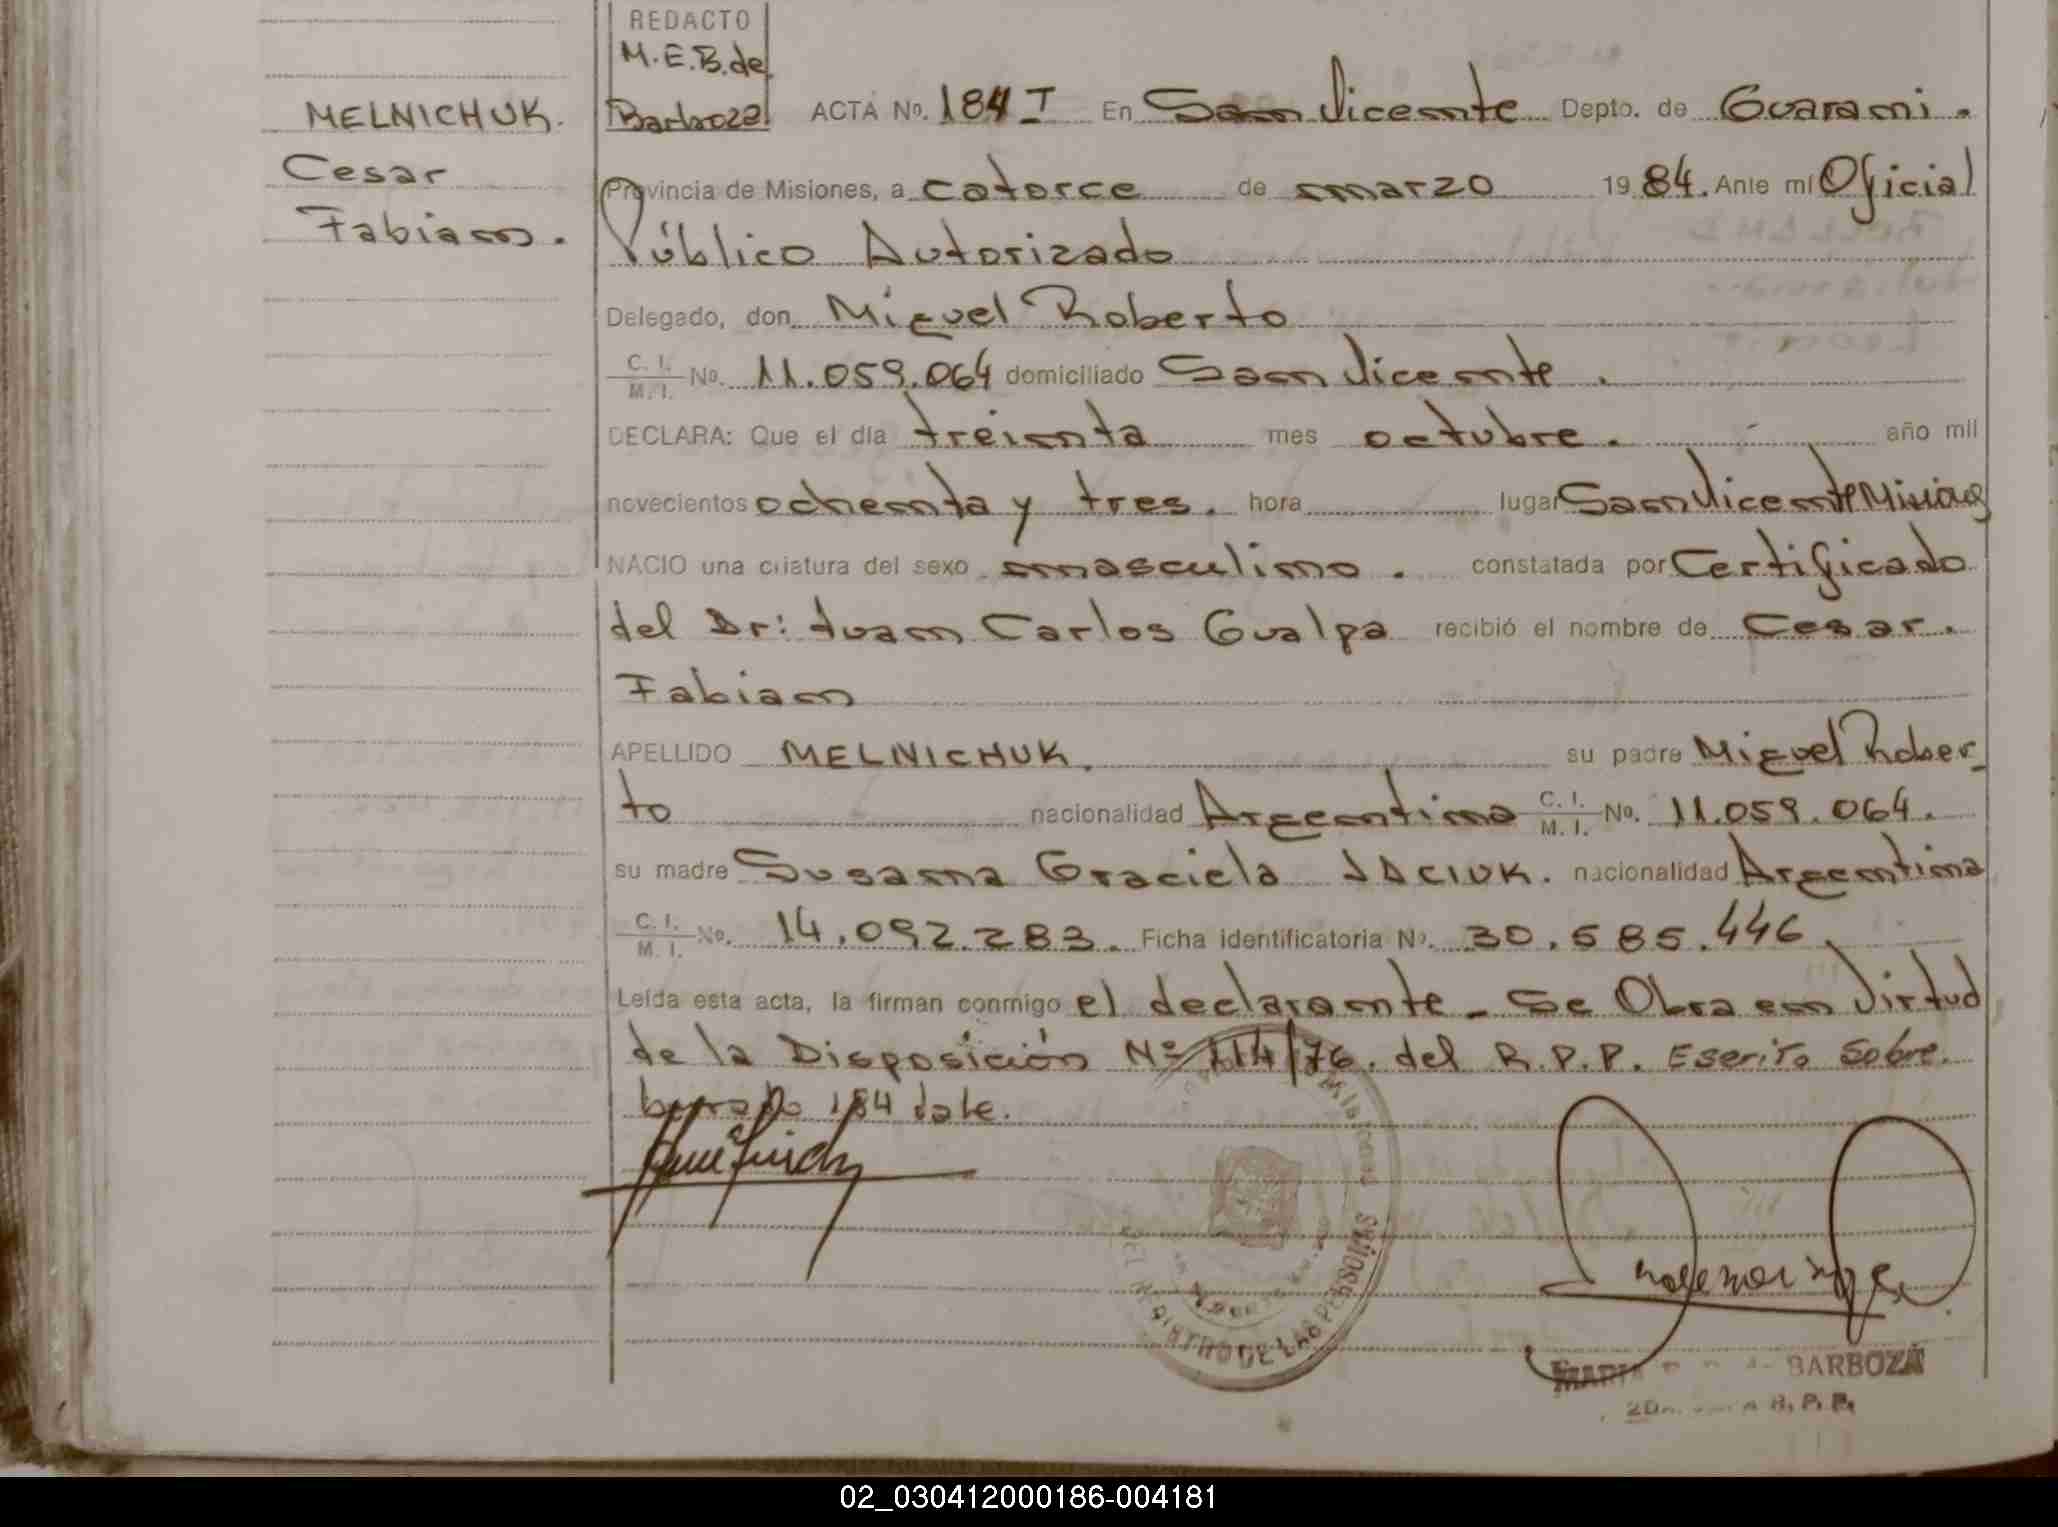 REDACTO
M.E.B. de
Barboza
MELNICHUK.
Cesar
Fabian.
ACTA No. 184 I En San Vicente Depto. de Guarani.
Provincia de Misiones, a catorce de marzo 19 84. Ante mí Oficial
Público Autorizado
Delegado, don Miguel Roberto
C. I. M. I. No. 11.059.064 domiciliado San Vicente.
DECLARA: Que el día treinta mes octubre. año mil
novecientos ochenta y tres. hora lugar San Vicente Misiones
NACIO una criatura del sexo masculino. constatada por Certificado
del Dr: Juan Carlos Gualpa recibió el nombre de Cesar.
Fabian
APELLIDO MELNICHUK. su padre Miguel Rober_
to nacionalidad Argentina C. I. M. I. No. 11.059.064.
su madre Susana Graciela JACIUK. nacionalidad Argentina
C. I. M. I. No. 14.092.283. Ficha identificatoria No. 30.585.446
Leída esta acta, la firman conmigo el declarante - Se Obra en Virtud
de la Disposición Nº 114/76. del R.P.P. Escrito Sobre
borrado 184 vale.
DEL REGISTRO DE LAS PERSONAS
MARIA BARBOZA
R. P. P.
02_030412000186-004181